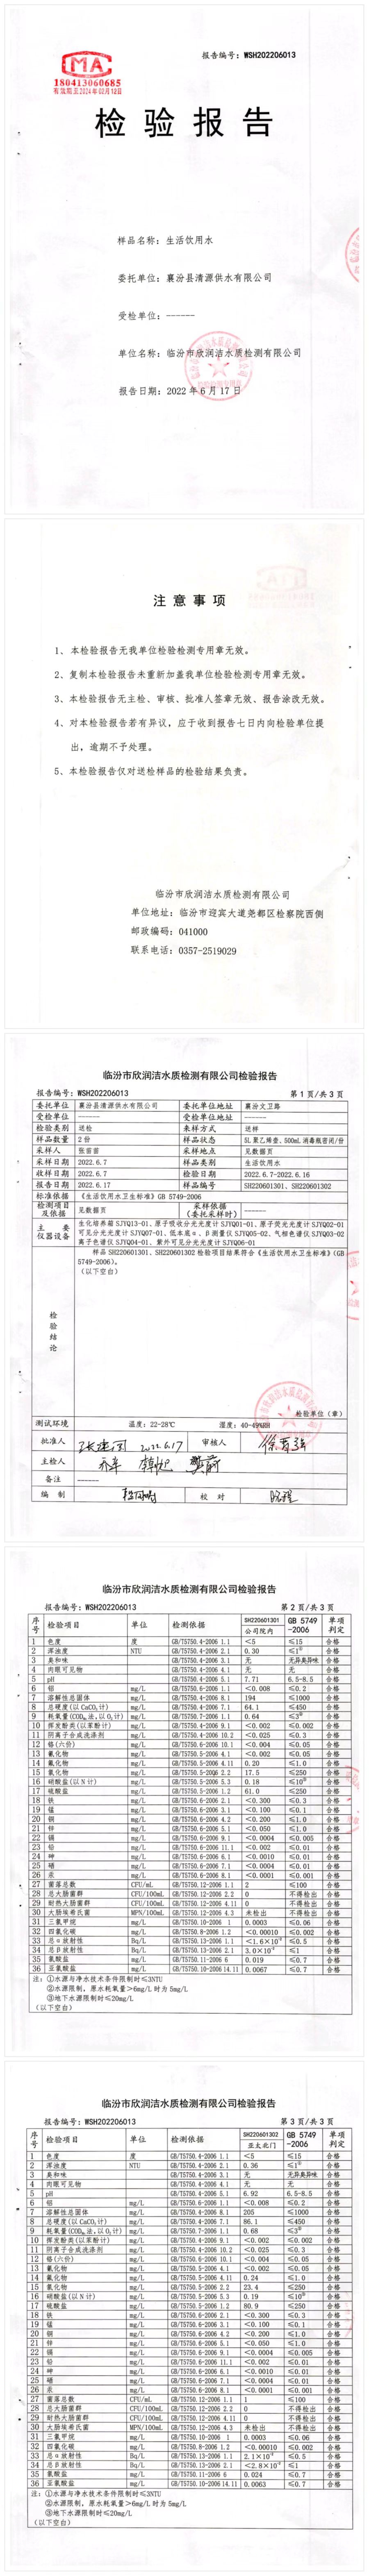 报告编号：WSH202206013
MA
180413060685
有效期至2024年02月12日
检验报告
样品名称：生活饮用水
委托单位：襄汾县清源供水有限公司
受检单位：------
单位名称：临汾市欣润洁水质检测有限公司
报告日期：2022年6月17日
注意事项
1、本检验报告无我单位检验检测专用章无效。
2、复制本检验报告未重新加盖我单位检验检测专用章无效。
3、本检验报告无主检、审核、批准人签章无效、报告涂改无效。
4、对本检验报告若有异议，应于收到报告七日内向检验单位提
出，逾期不予处理。
5、本检验报告仅对送检样品的检验结果负责。
临汾市欣润洁水质检测有限公司
单位地址：临汾市迎宾大道尧都区检察院西侧
邮政编码：041000
联系电话：0357-2519029
临汾市欣润洁水质检测有限公司检验报告
报告编号：WSH202206013 第1页/共3页
委托单位 襄汾县清源供水有限公司 委托单位地址 襄汾文卫路
受检单位 ------ 受检单位地址 ------
检验类别 送检 来样方式 送样
样品数量 2份 样品状态 5L聚乙烯壶、500mL消毒瓶密闭/份
采样人 张苗苗 采样地点 见数据页
采样日期 2022.6.7 样品类别 生活饮用水
收样日期 2022.6.7 检验日期 2022.6.7-2022.6.16
报告日期 2022.6.17 样品编号 SH220601301、SH220601302
标准依据 《生活饮用水卫生标准》GB 5749-2006
检测项目及依据 见数据页 采样依据（委托采样时） ------
主要仪器设备 生化培养箱SJYQ13-01、原子吸收分光光度计SJYQ01-01、原子荧光光度计SJYQ02-01
可见分光光度计SJYQ07-01、低本底α、β测量仪SJYQ05-02、气相色谱仪SJYQ03-02
离子色谱仪SJYQ04-01、紫外可见分光光度计SJYQ06-01
检验结论
样品SH220601301、SH220601302检验项目结果符合《生活饮用水卫生标准》（GB
5749-2006）。
（以下空白）
检验单位（章）
测试环境 温度：22-28℃ 湿度：40-49%RH
批准人 2022.6.17 审核人
主检人
备注 ------
编制 校对
临汾市欣润洁水质检测有限公司检验报告
报告编号：WSH202206013 第2页/共3页
序号 检验项目 单位 检测依据 SH220601301 公司院内 GB 5749-2006 单项判定
1 色度 度 GB/T5750.4-2006 1.1 <5 ≤15 合格
2 浑浊度 NTU GB/T5750.4-2006 2.1 0.30 ≤1① 合格
3 臭和味 GB/T5750.4-2006 3.1 无 无异臭异味 合格
4 肉眼可见物 GB/T5750.4-2006 4.1 无 无 合格
5 pH GB/T5750.4-2006 5.1 7.71 6.5-8.5 合格
6 铝 mg/L GB/T5750.6-2006 1.1 <0.008 ≤0.2 合格
7 溶解性总固体 mg/L GB/T5750.4-2006 8.1 194 ≤1000 合格
8 总硬度(以CaCO₃计) mg/L GB/T5750.4-2006 7.1 64.1 ≤450 合格
9 耗氧量(CODMn法,以O₂计) mg/L GB/T5750.7-2006 1.1 0.64 ≤3② 合格
10 挥发酚类(以苯酚计) mg/L GB/T5750.4-2006 9.1 <0.002 ≤0.002 合格
11 阴离子合成洗涤剂 mg/L GB/T5750.4-2006 10.2 <0.025 ≤0.3 合格
12 铬(六价) mg/L GB/T5750.6-2006 10.1 <0.004 ≤0.05 合格
13 氰化物 mg/L GB/T5750.5-2006 4.1 <0.002 ≤0.05 合格
14 氟化物 mg/L GB/T5750.5-2006 4.11 0.20 ≤1.0 合格
15 氯化物 mg/L GB/T5750.5-2006 2.2 17.5 ≤250 合格
16 硝酸盐(以N计) mg/L GB/T5750.5-2006 5.3 0.18 ≤10③ 合格
17 硫酸盐 mg/L GB/T5750.5-2006 1.2 61.0 ≤250 合格
18 铁 mg/L GB/T5750.6-2006 2.1 <0.300 ≤0.3 合格
19 锰 mg/L GB/T5750.6-2006 3.1 <0.100 ≤0.1 合格
20 铜 mg/L GB/T5750.6-2006 4.2 <0.200 ≤1.0 合格
21 锌 mg/L GB/T5750.6-2006 5.1 <0.050 ≤1.0 合格
22 镉 mg/L GB/T5750.6-2006 9.1 <0.0004 ≤0.005 合格
23 铅 mg/L GB/T5750.6-2006 11.1 <0.002 ≤0.01 合格
24 砷 mg/L GB/T5750.6-2006 6.1 <0.0010 ≤0.01 合格
25 硒 mg/L GB/T5750.6-2006 7.1 <0.0004 ≤0.01 合格
26 汞 mg/L GB/T5750.6-2006 8.1 <0.0001 ≤0.001 合格
27 菌落总数 CFU/mL GB/T5750.12-2006 1.1 2 ≤100 合格
28 总大肠菌群 CFU/100mL GB/T5750.12-2006 2.2 0 不得检出 合格
29 耐热大肠菌群 CFU/100mL GB/T5750.12-2006 4.11 0 不得检出 合格
30 大肠埃希氏菌 MPN/100mL GB/T5750.12-2006 4.3 未检出 不得检出 合格
31 三氯甲烷 mg/L GB/T5750.10-2006 1 0.0003 ≤0.06 合格
32 四氯化碳 mg/L GB/T5750.8-2006 1.2 <0.00010 ≤0.002 合格
33 总α放射性 Bq/L GB/T5750.13-2006 1.1 <1.6×10⁻² ≤0.5 合格
34 总β放射性 Bq/L GB/T5750.13-2006 2.1 3.0×10⁻² ≤1 合格
35 氯酸盐 mg/L GB/T5750.11-2006 6 0.019 ≤0.7 合格
36 亚氯酸盐 mg/L GB/T5750.10-2006 14.11 0.0067 ≤0.7 合格
注：①水源与净水技术条件限制时≤3NTU
②水源限制，原水耗氧量>6mg/L时为5mg/L
③地下水源限制时≤20mg/L
（以下空白）
临汾市欣润洁水质检测有限公司检验报告
报告编号：WSH202206013 第3页/共3页
序号 检验项目 单位 检测依据 SH220601302 亚太北门 GB 5749-2006 单项判定
1 色度 度 GB/T5750.4-2006 1.1 <5 ≤15 合格
2 浑浊度 NTU GB/T5750.4-2006 2.1 0.36 ≤1① 合格
3 臭和味 GB/T5750.4-2006 3.1 无 无异臭异味 合格
4 肉眼可见物 GB/T5750.4-2006 4.1 无 无 合格
5 pH GB/T5750.4-2006 5.1 6.92 6.5-8.5 合格
6 铝 mg/L GB/T5750.6-2006 1.1 <0.008 ≤0.2 合格
7 溶解性总固体 mg/L GB/T5750.4-2006 8.1 205 ≤1000 合格
8 总硬度(以CaCO₃计) mg/L GB/T5750.4-2006 7.1 86.1 ≤450 合格
9 耗氧量(CODMn法,以O₂计) mg/L GB/T5750.7-2006 1.1 0.68 ≤3② 合格
10 挥发酚类(以苯酚计) mg/L GB/T5750.4-2006 9.1 <0.002 ≤0.002 合格
11 阴离子合成洗涤剂 mg/L GB/T5750.4-2006 10.2 <0.025 ≤0.3 合格
12 铬(六价) mg/L GB/T5750.6-2006 10.1 <0.004 ≤0.05 合格
13 氰化物 mg/L GB/T5750.5-2006 4.1 <0.002 ≤0.05 合格
14 氟化物 mg/L GB/T5750.5-2006 4.11 0.24 ≤1.0 合格
15 氯化物 mg/L GB/T5750.5-2006 2.2 23.4 ≤250 合格
16 硝酸盐(以N计) mg/L GB/T5750.5-2006 5.3 0.19 ≤10③ 合格
17 硫酸盐 mg/L GB/T5750.5-2006 1.2 80.9 ≤250 合格
18 铁 mg/L GB/T5750.6-2006 2.1 <0.300 ≤0.3 合格
19 锰 mg/L GB/T5750.6-2006 3.1 <0.100 ≤0.1 合格
20 铜 mg/L GB/T5750.6-2006 4.2 <0.200 ≤1.0 合格
21 锌 mg/L GB/T5750.6-2006 5.1 <0.050 ≤1.0 合格
22 镉 mg/L GB/T5750.6-2006 9.1 <0.0004 ≤0.005 合格
23 铅 mg/L GB/T5750.6-2006 11.1 <0.002 ≤0.01 合格
24 砷 mg/L GB/T5750.6-2006 6.1 <0.0010 ≤0.01 合格
25 硒 mg/L GB/T5750.6-2006 7.1 <0.0004 ≤0.01 合格
26 汞 mg/L GB/T5750.6-2006 8.1 <0.0001 ≤0.001 合格
27 菌落总数 CFU/mL GB/T5750.12-2006 1.1 1 ≤100 合格
28 总大肠菌群 CFU/100mL GB/T5750.12-2006 2.2 0 不得检出 合格
29 耐热大肠菌群 CFU/100mL GB/T5750.12-2006 4.11 0 不得检出 合格
30 大肠埃希氏菌 MPN/100mL GB/T5750.12-2006 4.3 未检出 不得检出 合格
31 三氯甲烷 mg/L GB/T5750.10-2006 1 0.0003 ≤0.06 合格
32 四氯化碳 mg/L GB/T5750.8-2006 1.2 <0.00010 ≤0.002 合格
33 总α放射性 Bq/L GB/T5750.13-2006 1.1 2.1×10⁻² ≤0.5 合格
34 总β放射性 Bq/L GB/T5750.13-2006 2.1 <2.8×10⁻² ≤1 合格
35 氯酸盐 mg/L GB/T5750.11-2006 6 0.024 ≤0.7 合格
36 亚氯酸盐 mg/L GB/T5750.10-2006 14.11 0.0063 ≤0.7 合格
注：①水源与净水技术条件限制时≤3NTU
②水源限制，原水耗氧量>6mg/L时为5mg/L
③地下水源限制时≤20mg/L
（以下空白）